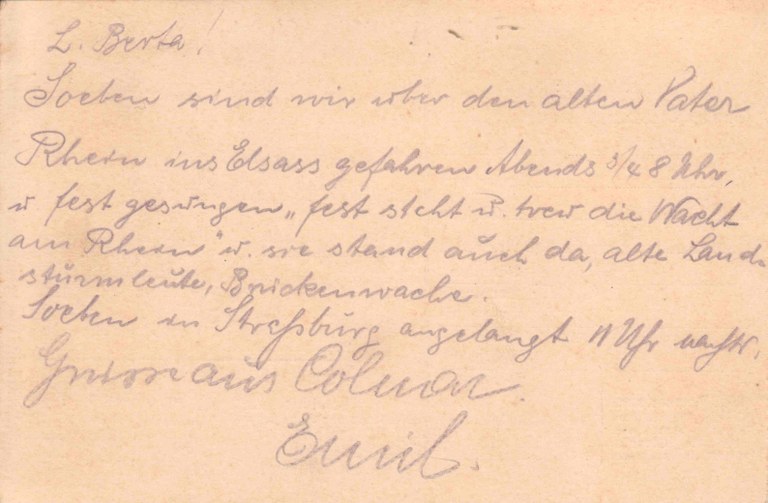 L. Berta!
Soeben sind wir über den alten Vater
Rhein ins Elsass gefahren Abends 3/4 8 Uhr,
u fest gesungen „fest steht u. treu die Wacht
am Rhein" u. sie stand auch da, alte Land-
sturmleute, Brückenwache.
Soeben in Straßburg angelangt 11 Uhr nachts.
Grüsse aus Colmar.
Emil.